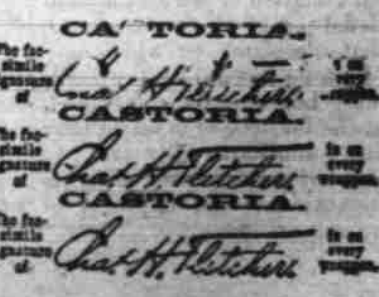 CASTORIA.
The fac-
simile
signature
of
Chas. H. Fletcher
is on
every
wrapper.
CASTORIA.
The fac-
simile
signature
of
Chas. H. Fletcher
is on
every
wrapper.
CASTORIA.
The fac-
simile
signature
of
Chas. H. Fletcher
is on
every
wrapper.